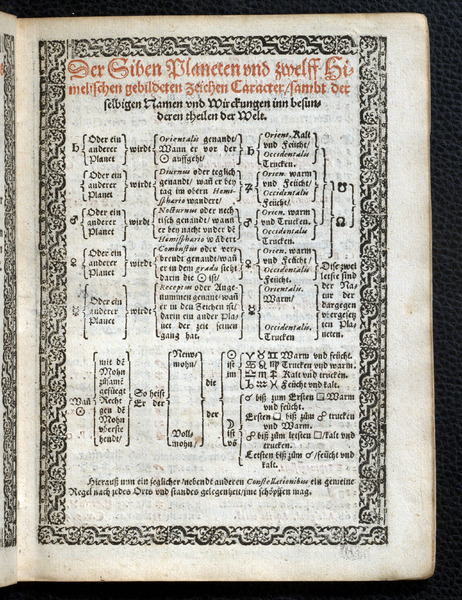 Der Siben Planeten vnd zwelff Hi-
melischen gebildeten Zeichen Caracter/sambt der
selbigen Namen vnd Wirckungen inn besun-
deren theilen der Welt.
♄ Oder ein anderer Planet wirdt
Orientalis genandt/
Wann er vor der
☉ auffgeht/
Oder ein anderer Planet wirdt
Diurnus oder teglich
genandt/
tag im obern Hemi-
sphario wandert/
♂ Oder ein anderer Planet wirdt
Nocturnus oder nech-
tisch genandt/ wann
er bey nacht vnder dē
Hemisphario
♀ Oder ein anderer Planet wirdt
Combustus oder ver-
brendt genandt/
er in dem gradu steht
darin die ☉ ist/
☿ Oder ein anderer Planet wirdt
Receptus oder Ange-
nummen genant/
er in den Zeichen ist/
darin ein ander Pla-
net der zeit seinen
gang hat.
♄ Orient. Kalt
vnd Feücht/
Occidentalis
Trucken.
♃ Orien. warm
vnd Feücht/
Occidentalis
Feücht/
♂ Orien. warm
vnd Trucken.
Occidentalis
Trucken.
♀ Orien. warm
vnd Feücht/
Occidentalis
Feücht.
☿ Orientalis.
Warm/
Occidentalis.
Trucken
☋
☊
Dise zwei
letste sind
der Na-
tur der
dargegen
vergesetz
ten Pla-
neten.
☉
mit dē
Mohn
gefüegt
Recht
gen dē
Mohn
vberste
hendt/
So heist
Er der
Newmohn/
Vollmohn/
die
der
☉
ist
im
☽
ist
♈ ♉ ♊ Warm vnd feücht.
♋ ♌ ♍ Trucken vnd warm.
♎ ♏ ♐ Kalt vnd trucken.
♑ ♒ ♓ Feücht vnd kalt.
☌ biß zum Ersten □ Warm
vnd feücht.
Ersten □ biß zům ☍ trucken
vnd Warm.
☍ biß zům letsten □/kalt vnd
trucken.
Letsten biß zům ☌/feücht vnd
kalt.
Hierauß nun ein jeglicher/nebendt anderen Constellationibus ein gemeine
Regel nach jedes Orts vnd standes gelegenheit/jme schöpffen mag.